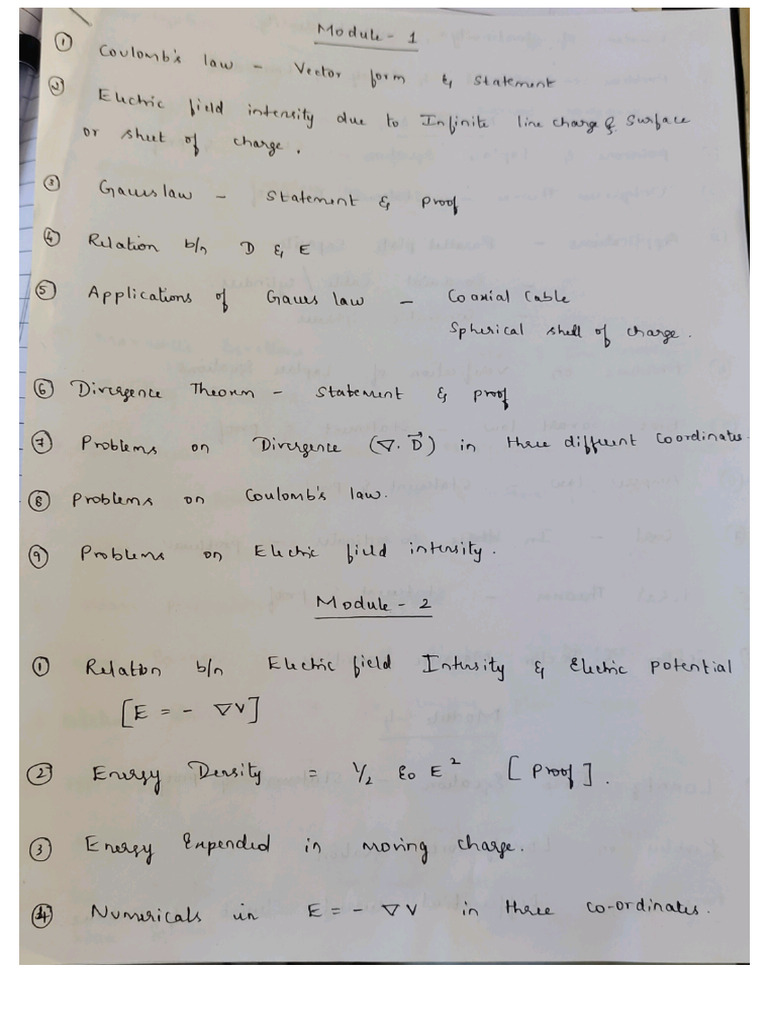 Module - 1
① Coulomb's law - Vector form & Statement
② Electric field intensity due to Infinite line charge & Surface
or sheet of charge.
③ Gauss law - Statement & Proof
④ Relation b/n D & E
⑤ Applications of Gauss law - Coaxial Cable
Spherical shell of charge.
⑥ Divergence Theorem - Statement & proof
⑦ Problems on Divergence (∇. D⃗) in three different Coordinates.
⑧ Problems on Coulomb's law.
⑨ Problems on Electric field intensity.
Module - 2
① Relation b/n Electric field Intensity & Electric potential
[E = - ∇V]
② Energy Density = 1/2 ε0 E² [Proof].
③ Energy Expended in moving charge.
④ Numericals in E = - ∇V in three co-ordinates.